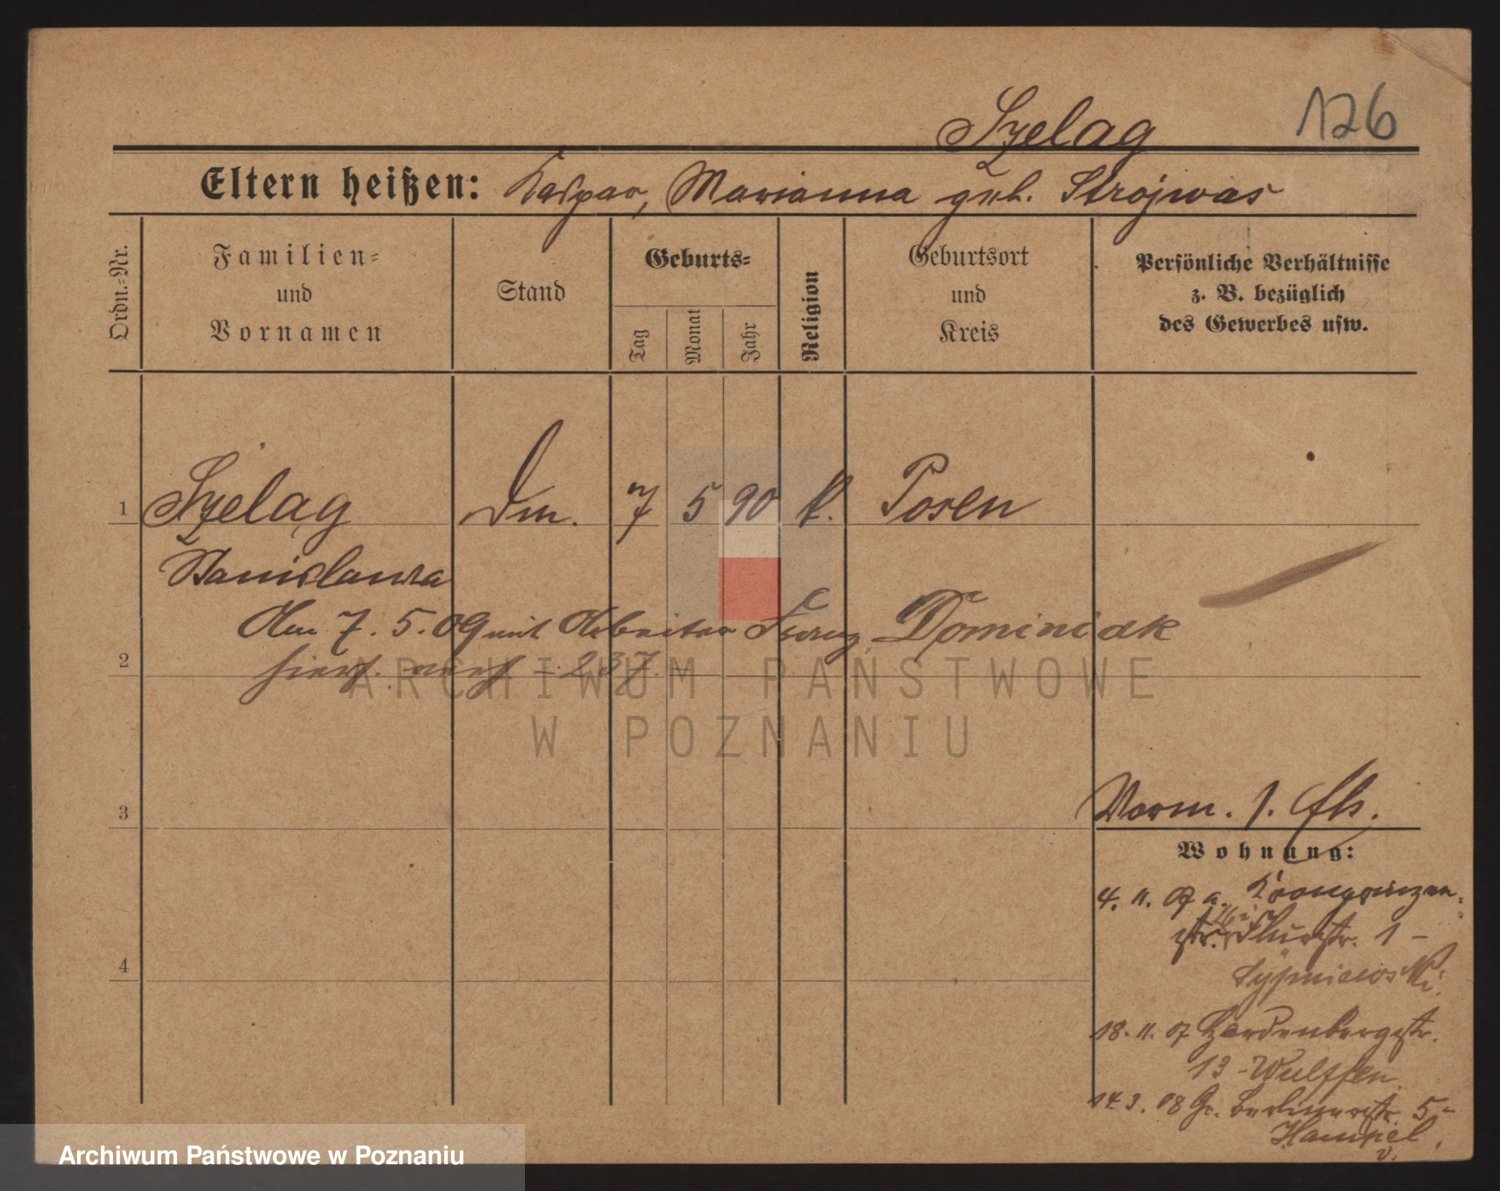 126
Szelag
Eltern heißen: Kaspar, Marianna geb. Strojwas
Ordn.-Nr.
Familien-
und
Vornamen
Stand
Geburts-
Tag
Monat
Jahr
Religion
Geburtsort
und
Kreis
Persönliche Verhältnisse
z. B. bezüglich
des Gewerbes usw.
1 Szelag Dm. 7 5 90 k. Posen
Stanislawa
Am 7. 5. 09 mit Arbeiter Franz Dominiak
2 hier verh. - 237.
3
4
Vorm. 1.
Wohnung:
4. 11. 07 a. Kronprinzen-
str. 1 -
Sypniewski.
18. 11. 07 Hardenbergstr.
13 - Wulffen
14. 3. 08 Gr. Berlinerstr. 5 -
Hampel.
v.
ARCHIWUM PAŃSTWOWE
W POZNANIU
Archiwum Państwowe w Poznaniu